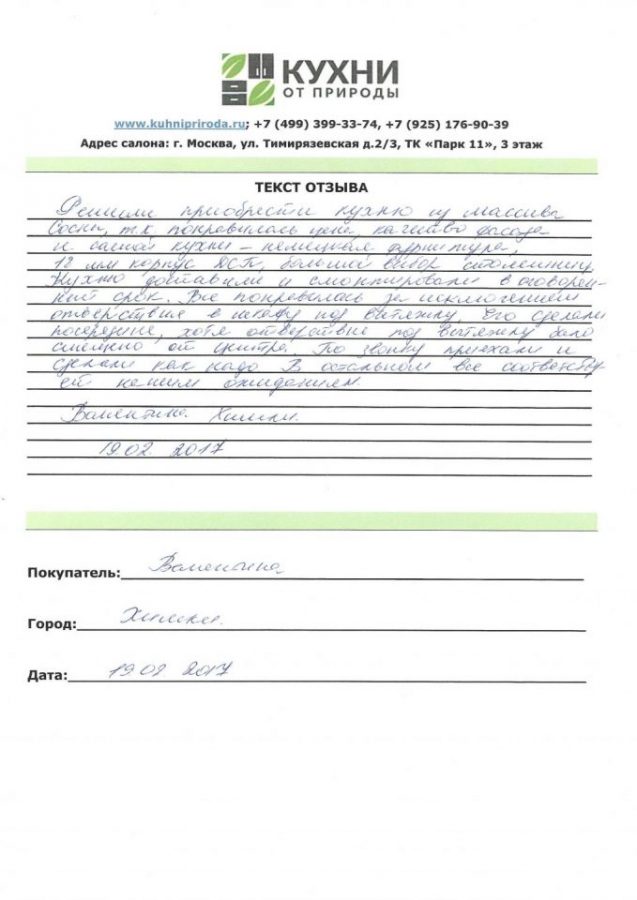 КУХНИ
ОТ ПРИРОДЫ
www.kuhnipriroda.ru; +7 (499) 399-33-74, +7 (925) 176-90-39
Адрес салона: г. Москва, ул. Тимирязевская д.2/3, ТК «Парк 11», 3 этаж
ТЕКСТ ОТЗЫВА
Решили приобрести кухню из массива
Сосны, т.к. понравилась цена, качество фасада
и самой кухни – немецкая фурнитура,
18 мм корпус ДСП, большой выбор столешниц.
Кухню доставили и смонтировали в оговорен-
ный срок. Все понравилось за исключением
отверствия в шкафу под вытяжку. Его сделали
посередине, хотя отверствие под вытяжку было
смещено от центра. По звонку приехали и
сделали как надо. В остальном все соответству
ет нашим ожиданиям.
Валентина. Химки.
19.02. 2017
Покупатель: Валентина
Город: Химки
Дата: 19 02 2017